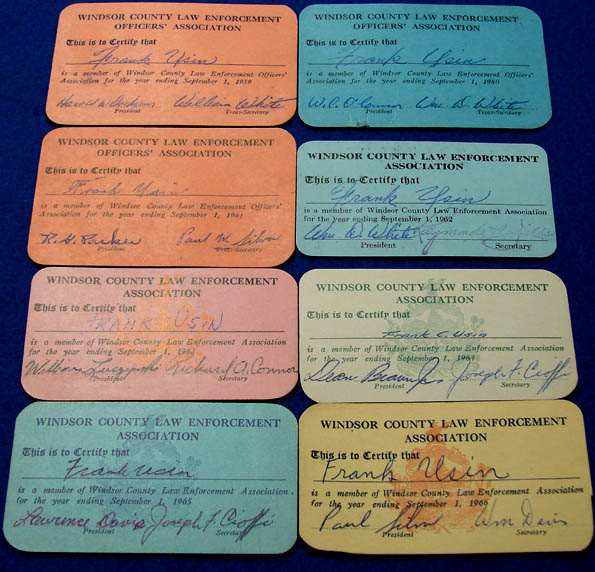 WINDSOR COUNTY LAW ENFORCEMENT
OFFICERS' ASSOCIATION
This is to Certify that
Frank Usin
is a member of Windsor County Law Enforcement Officers'
Association for the year ending September 1, 1959
William White
President Treas-Secretary
WINDSOR COUNTY LAW ENFORCEMENT
OFFICERS' ASSOCIATION
This is to Certify that
Frank Usin
is a member of Windsor County Law Enforcement Officers'
Association for the year ending September 1, 1960
W. C. O'Connor Wm. D. White
President Treas-Secretary
WINDSOR COUNTY LAW ENFORCEMENT
OFFICERS' ASSOCIATION
This is to Certify that
Frank Usin
is a member of Windsor County Law Enforcement Officers'
Association for the year ending September 1, 1961
R. H. Barker Paul W. Silva
President Treas-Secretary
WINDSOR COUNTY LAW ENFORCEMENT
ASSOCIATION
This is to Certify that
Frank Usin
is a member of Windsor County Law Enforcement Association
for the year ending September 1, 1962
Wm D. White
President Secretary
WINDSOR COUNTY LAW ENFORCEMENT
ASSOCIATION
This is to Certify that
FRANK USIN
is a member of Windsor County Law Enforcement Association
for the year ending September 1,
William Richard A. Connor
President Secretary
WINDSOR COUNTY LAW ENFORCEMENT
ASSOCIATION
This is to Certify that
Frank C. Usin
is a member of Windsor County Law Enforcement Association
for the year ending September 1, 1964
Dean Joseph F. Cioffi
President Secretary
WINDSOR COUNTY LAW ENFORCEMENT
ASSOCIATION
This is to Certify that
Frank Usin
is a member of Windsor County Law Enforcement Association
for the year ending September 1, 1965
Lawrence Davis Joseph F. Cioffi
President Secretary
WINDSOR COUNTY LAW ENFORCEMENT
ASSOCIATION
This is to Certify that
Frank Usin
is a member of Windsor County Law Enforcement Association
for the year ending September 1, 1966
Paul Silva Wm Davis
President Secretary